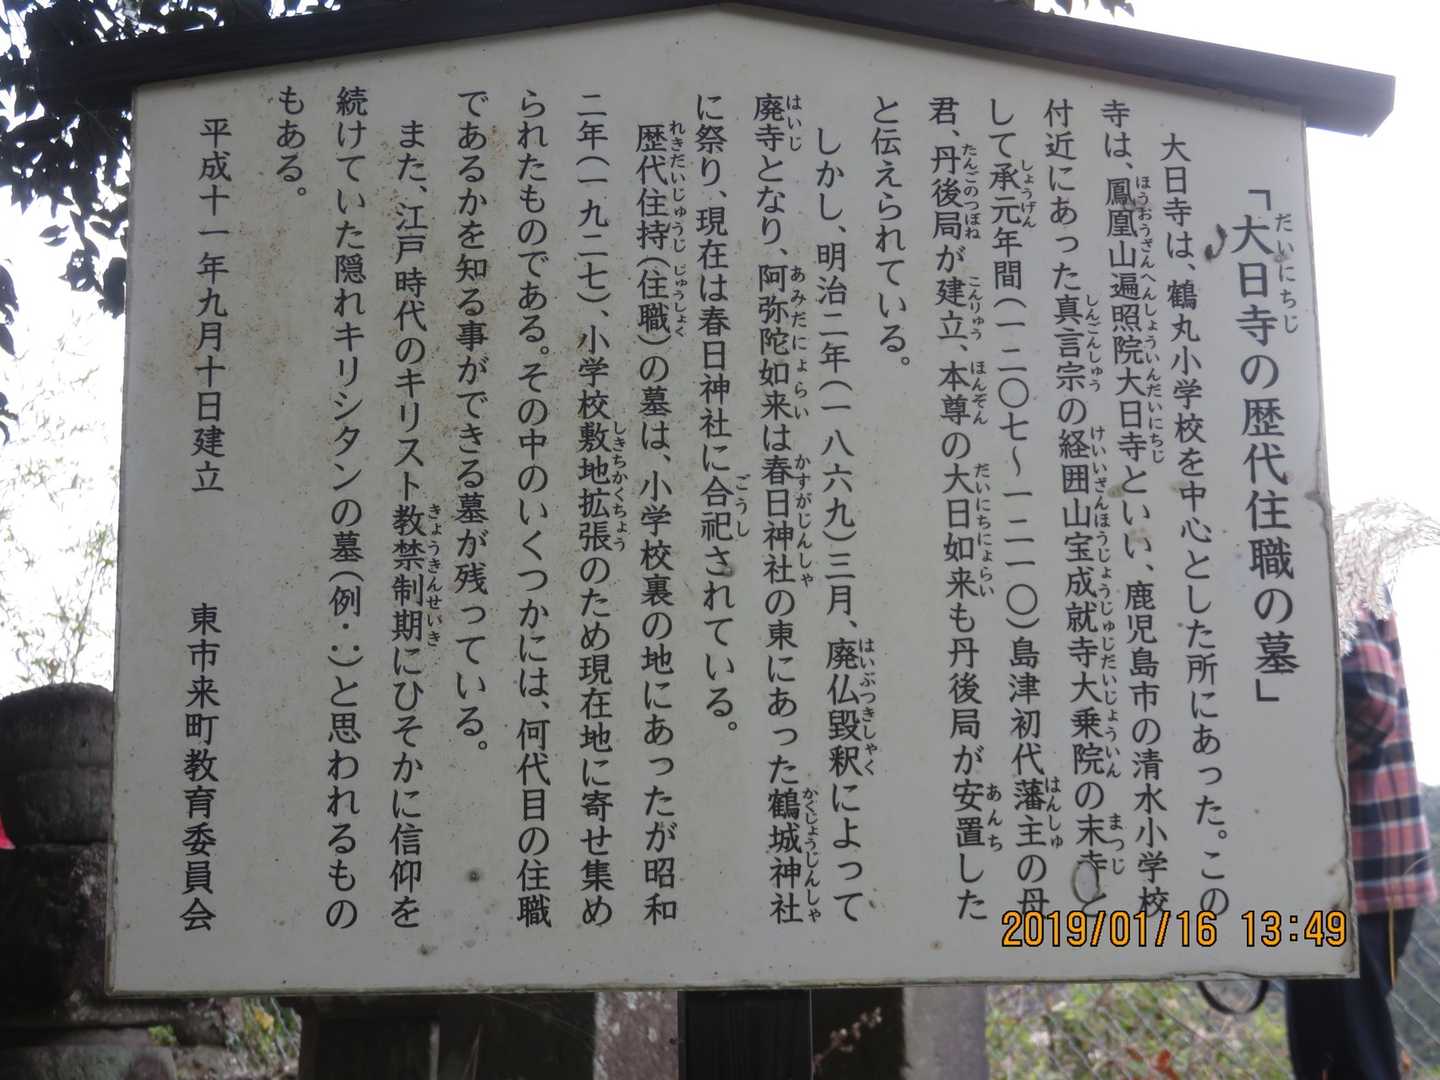 「大日寺の歴代住職の墓」
大日寺は、鶴丸小学校を中心とした所にあった。この
寺は、鳳凰山遍照院大日寺といい、鹿児島市の清水小学校
付近にあった真言宗の経囲山宝成就寺大乗院の末寺と
して承元年間(一二〇七〜一二一〇)島津初代藩主の母
君、丹後局が建立、本尊の大日如来も丹後局が安置した
と伝えられている。
しかし、明治二年(一八六九)三月、廃仏毀釈によって
廃寺となり、阿弥陀如来は春日神社の東にあった鶴城神社
に祭り、現在は春日神社に合祀されている。
歴代住持(住職)の墓は、小学校裏の地にあったが昭和
二年(一九二七)、小学校敷地拡張のため現在地に寄せ集め
られたものである。その中のいくつかには、何代目の住職
であるかを知る事ができる墓が残っている。
また、江戸時代のキリスト教禁制期にひそかに信仰を
続けていた隠れキリシタンの墓(例・∵)と思われるもの
もある。
平成十一年九月十日建立 東市来町教育委員会
2019/01/16 13:49